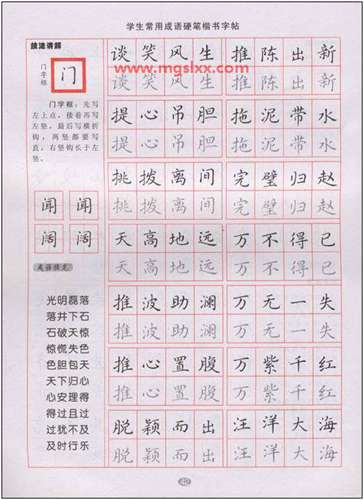 学生常用成语硬笔楷书字帖
技法讲解
门字框
门
门字框：先写
左上点，接着再写
左竖，最后写横折
钩，两竖都要写
直，右竖钩长于左
竖。
闻 闻
阔 阔
成语填充
光明磊落
落井下石
石破天惊
惊慌失色
色胆包天
天下归心
心安理得
得过且过
过犹不及
及时行乐
谈笑风生 推陈出新
谈笑风生 推陈出新
www.mgslxx.com
提心吊胆 拖泥带水
提心吊胆 拖泥带水
挑拨离间 完璧归赵
挑拨离间 完璧归赵
天高地远 万不得已
天高地远 万不得已
推波助澜 万无一失
推波助澜 万无一失
推心置腹 万紫千红
推心置腹 万紫千红
脱颖而出 汪洋大海
脱颖而出 汪洋大海